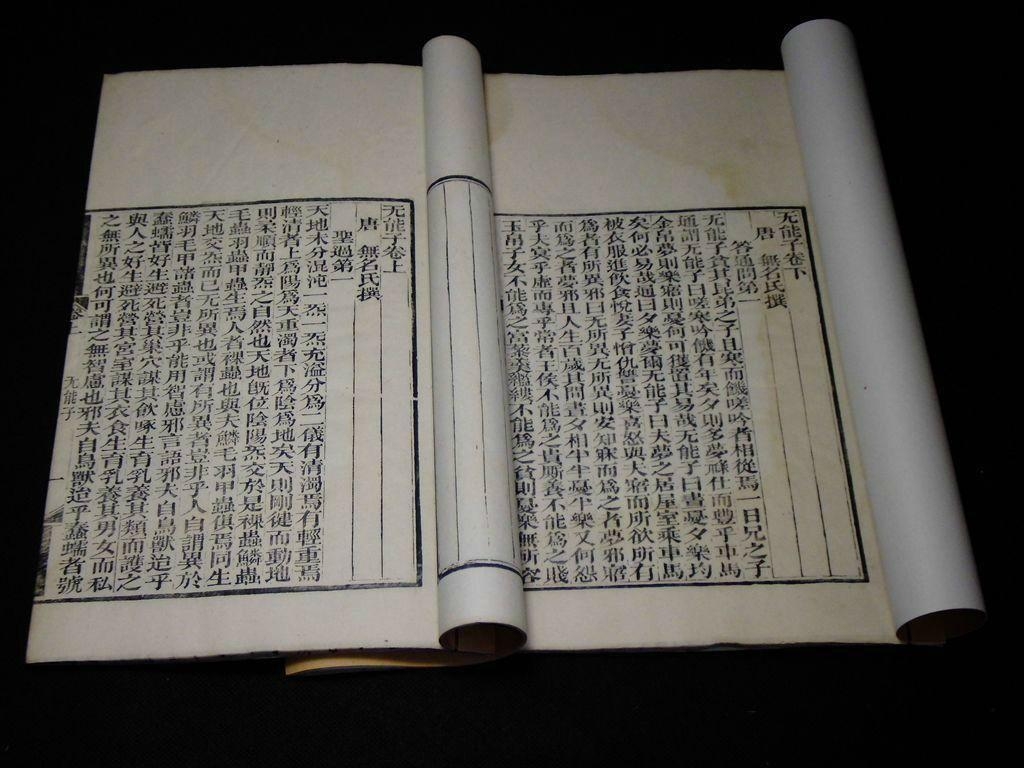 无能子卷下
唐 無名氏撰
答通問第一
无能子貧其昆弟之子且寒而饑嗟吟者相從焉一日兄之子
通謂无能子曰嗟寒吟饑有年矣夕則多夢祿仕而豐乎車馬
金帛夢則樂寤則憂何可獲置其易哉无能子曰晝憂夕樂均
矣何必易哉通曰夕樂夢爾无能子曰夫夢之居屋室乘車馬
被衣服進飲食悅妻子憎仇讐憂樂喜怒與夫寤而所欲所有
爲者有所異邪曰无所異无所異則安知寐而爲之者夢邪寤
而爲之者夢邪且人生百歲其間晝夕相半半憂半樂又何怨
乎夫冥乎虛而專乎常者王侯不能爲之貴厮養不能爲之賤
玉帛子女不能爲之富藜羹繿縷不能爲之貧則憂樂無所容
无能子卷上
唐 無名氏撰
聖過第一
天地未分混沌一炁一炁充溢分爲二儀有清濁焉有輕重焉
輕清者上爲陽爲天重濁者下爲陰爲地矣天則剛健而動地
則柔順而靜炁之自然也天地既位陰陽炁交於是裸蟲鱗蟲
毛蟲羽蟲甲蟲生焉人者裸蟲也與夫鱗毛羽甲蟲俱焉同生
天地交炁而已无所異也或謂有所異者豈非乎人自謂異於
鱗羽毛甲諸蟲者豈非乎能用智慮邪言語邪夫自鳥獸迨乎
蠢蠕皆好生避死營其巢穴謀其飲啄生育乳養其類而護之
與人之好生避死營其宮室謀其衣食生育乳養其男女而私
之無所異也何可謂之無智慮也邪夫自鳥獸迨乎蠢蠕者號
无能子
一